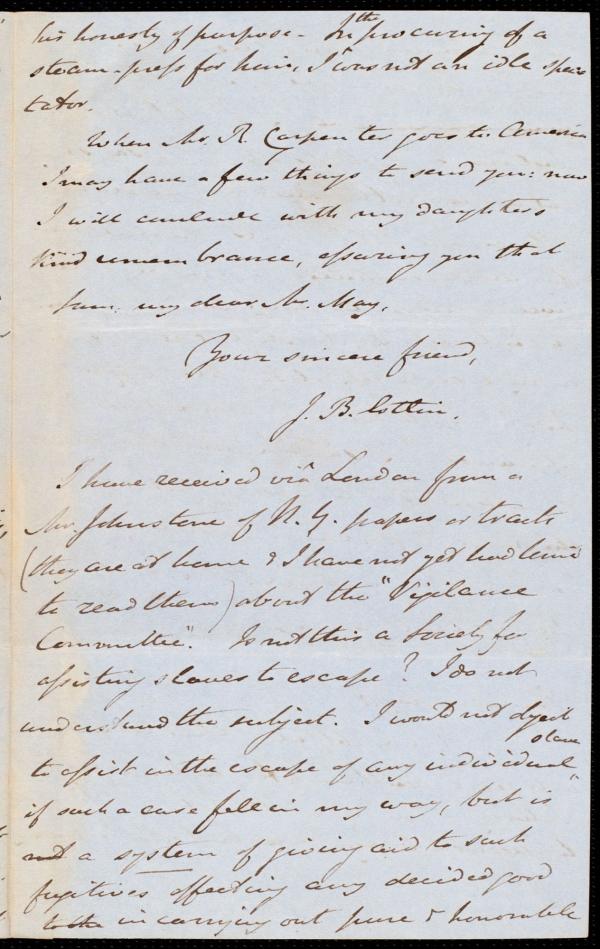 his honesty of purpose - In the procuring of a
steam-press for him, I was not an idle spec
tator.
When Mr. R. Carpenter goes to America
I may have a few things to send you: now
I will conclude with my daughter's
kind remembrance, assuring you that
I am, my dear Mr. May,
Your sincere friend,
J. B. Estlin.
I have received via London from a
Mr. Johnstone of N. Y. papers or tracts
(they are at home & I have not yet had time
to read them) about the "Vigilance
Committee". Is not this a Society for
assisting slaves to escape? I do not
understand the subject. I would not object
to assist in the escape of any individual slave
if such a case fell in my way, but is
not a system of giving aid to such
fugitives effecting any decided good
in carrying out pure & honorable